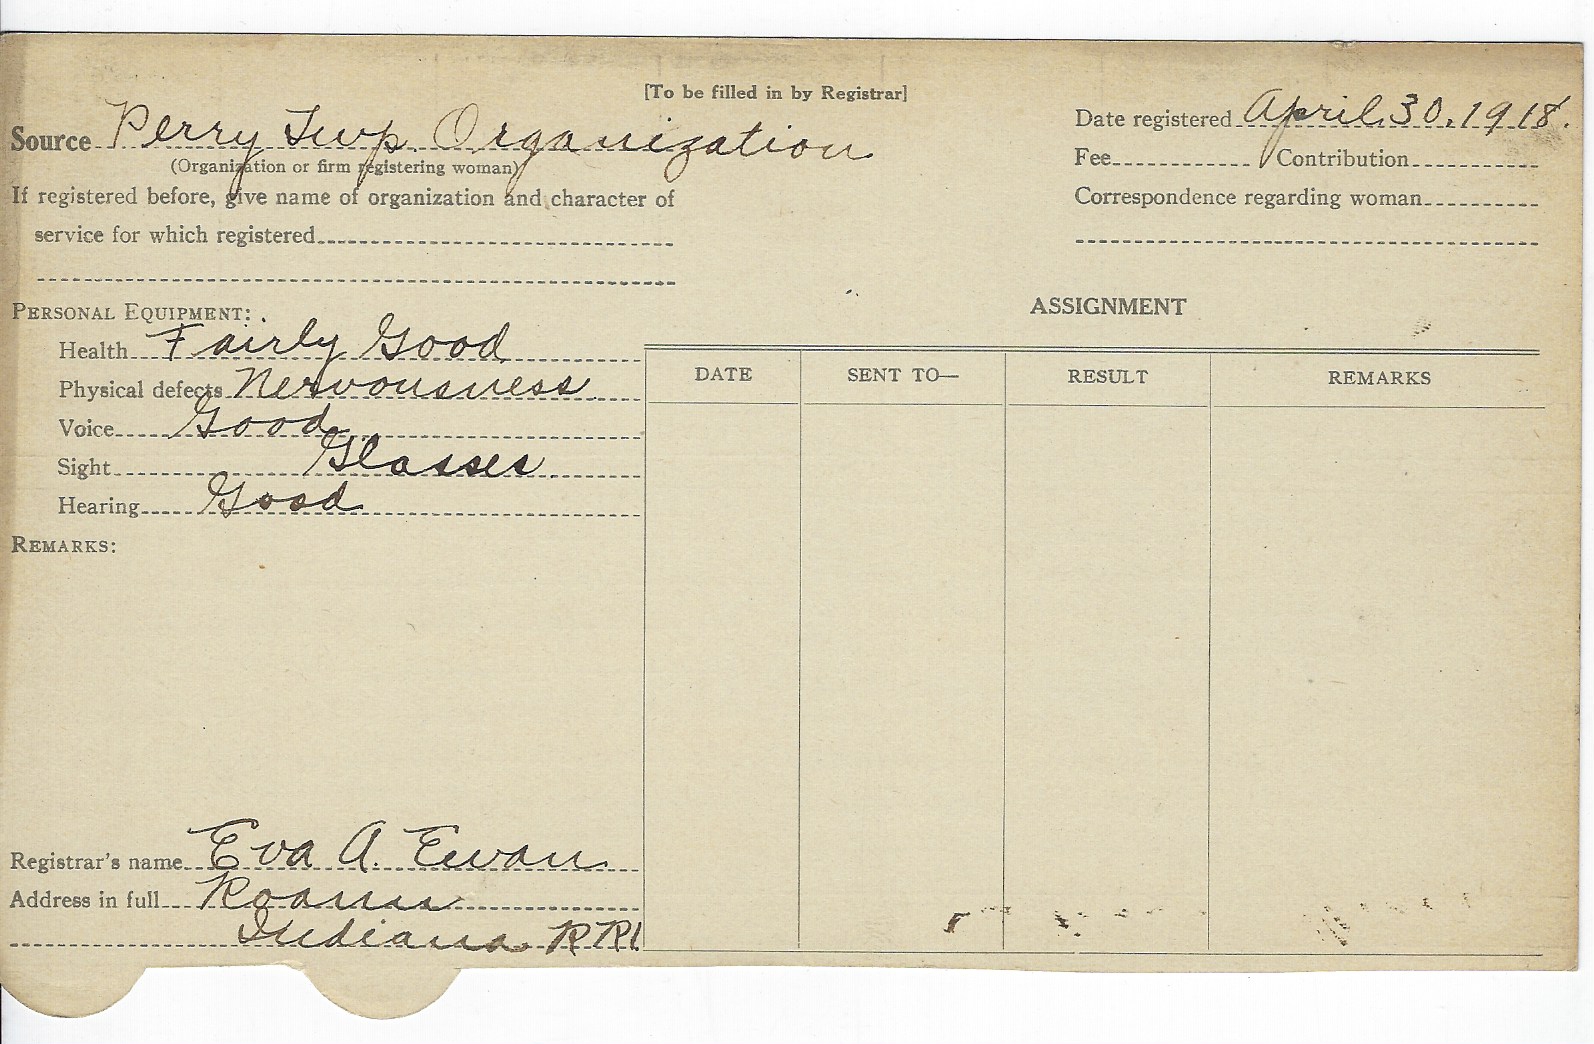 [To be filled in by Registrar]
Source Perry Twp. Organization
(Organization or firm registering woman)
Date registered April 30, 1918.
Fee Contribution
If registered before, give name of organization and character of
service for which registered
Correspondence regarding woman
PERSONAL EQUIPMENT:
Health Fairly Good
Physical defects Nervousness
Voice Good
Sight Glasses
Hearing Good
REMARKS:
ASSIGNMENT
DATE SENT TO— RESULT REMARKS
Registrar's name Eva A. Ewan
Address in full Roann
Indiana RR1